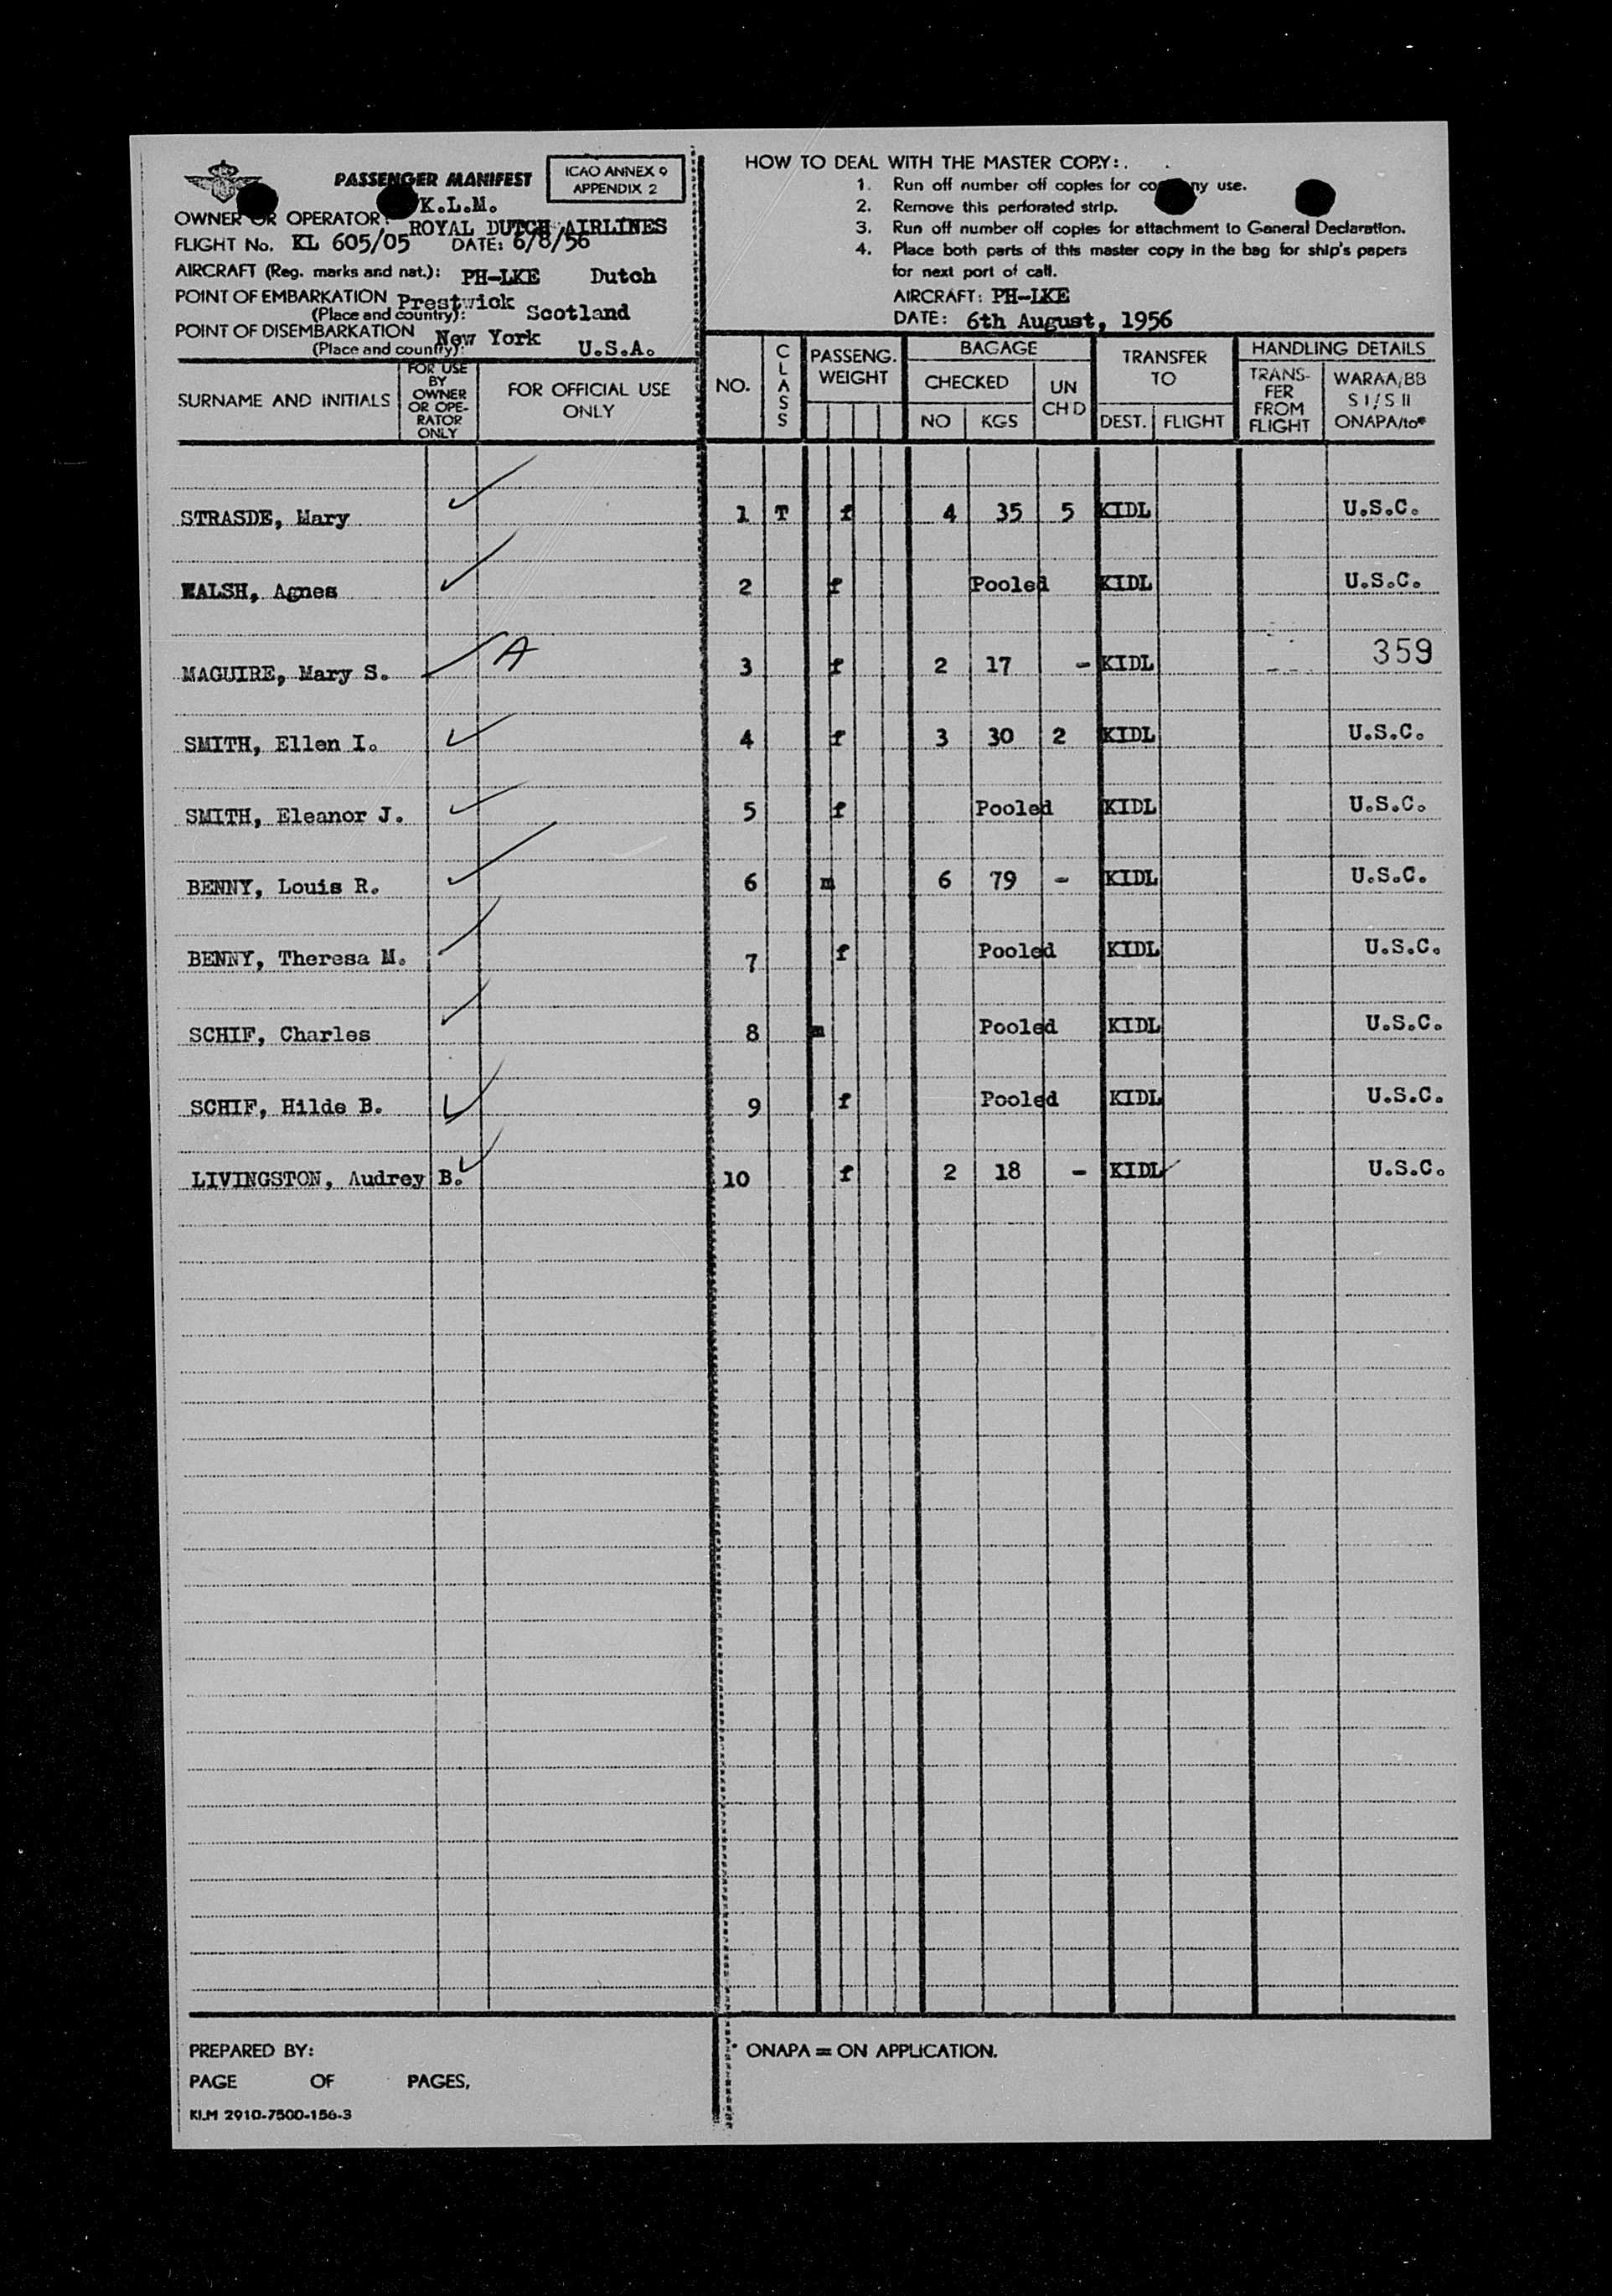 PASSENGER MANIFEST
ICAO ANNEX 9
APPENDIX 2
K.L.M.
OWNER OR OPERATOR: ROYAL DUTCH AIRLINES
FLIGHT No. KL 605/05 DATE: 6/8/56
AIRCRAFT (Reg. marks and nat.): PH-LKE Dutch
POINT OF EMBARKATION Prestwick Scotland
(Place and country):
POINT OF DISEMBARKATION New York U.S.A.
(Place and country):
HOW TO DEAL WITH THE MASTER COPY:
1. Run off number off copies for company use.
2. Remove this perforated strip.
3. Run off number off copies for attachment to General Declaration.
4. Place both parts of this master copy in the bag for ship's papers
for next port of call.
AIRCRAFT: PH-LKE
DATE: 6th August, 1956
SURNAME AND INITIALS
FOR USE
BY
OWNER
OR OPE-
RATOR
ONLY
FOR OFFICIAL USE
ONLY
NO.
CLASS
PASSENG.
WEIGHT
BAGAGE
CHECKED
NO KGS
UN
CHD
TRANSFER
TO
DEST. FLIGHT
HANDLING DETAILS
TRANS-
FER
FROM
FLIGHT
WARAA/BB
S I / S II
ONAPA/to*
STRASDE, Mary 1 T f 4 35 5 KIDL U.S.C.
WALSH, Agnes 2 f Pooled KIDL U.S.C.
MAGUIRE, Mary S. A 3 f 2 17 - KIDL 359
SMITH, Ellen I. 4 f 3 30 2 KIDL U.S.C.
SMITH, Eleanor J. 5 f Pooled KIDL U.S.C.
BENNY, Louis R. 6 m 6 79 - KIDL U.S.C.
BENNY, Theresa M. 7 f Pooled KIDL U.S.C.
SCHIF, Charles 8 m Pooled KIDL U.S.C.
SCHIF, Hilde B. 9 f Pooled KIDL U.S.C.
LIVINGSTON, Audrey B. 10 f 2 18 - KIDL U.S.C.
PREPARED BY:
PAGE OF PAGES,
KLM 2910-7500-156-3
* ONAPA = ON APPLICATION.